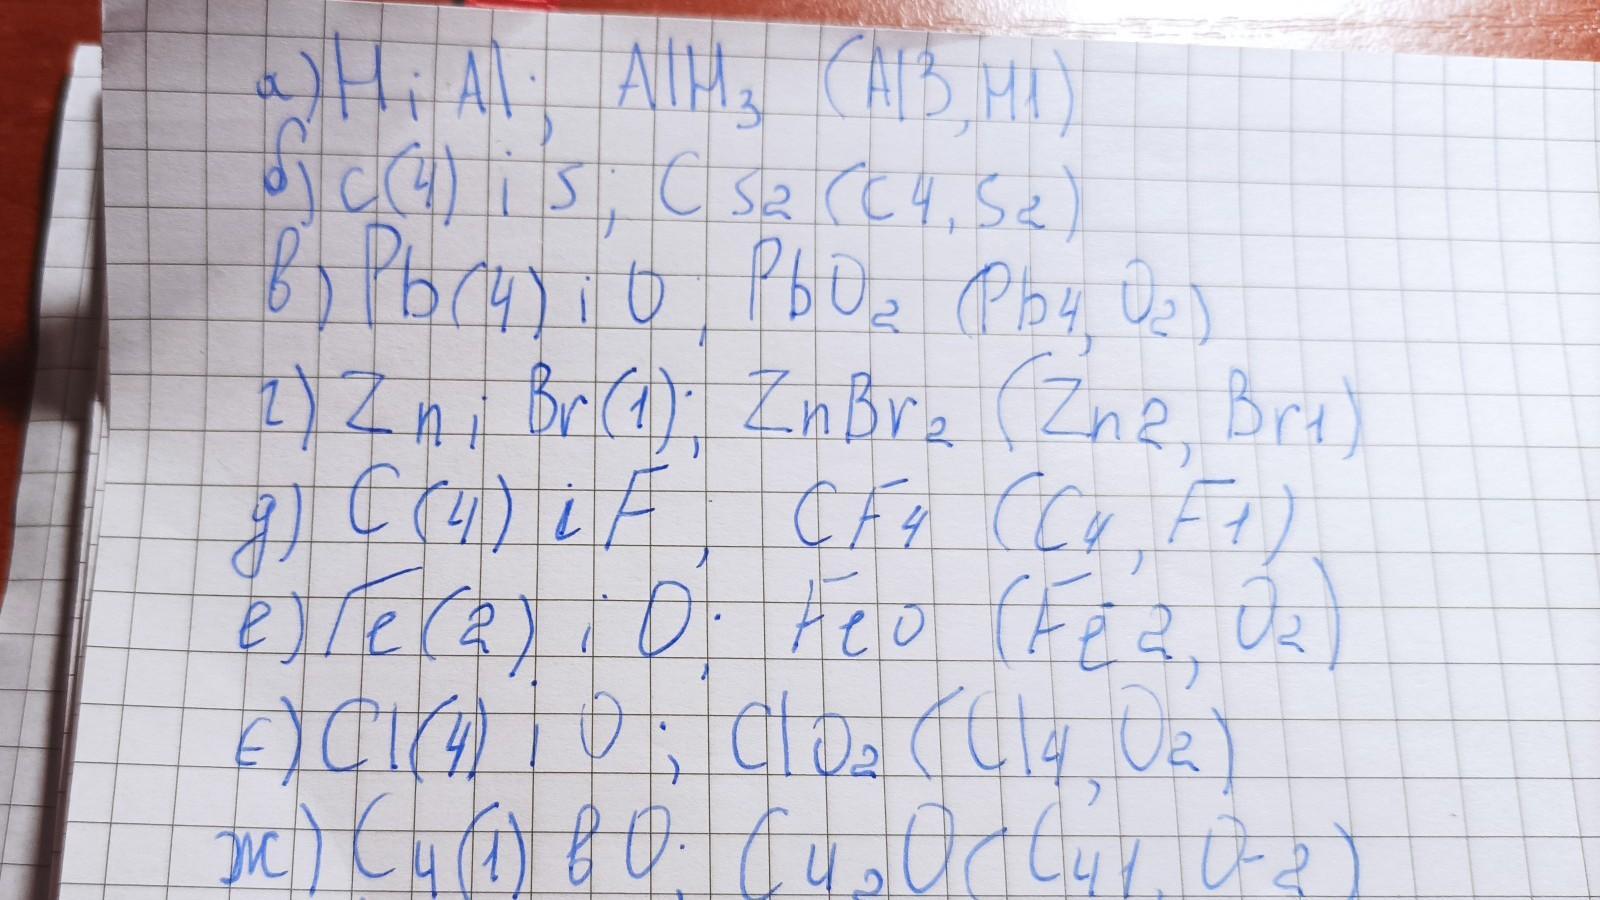 а) H i Al; AlH3 (Al3, H1)
б) c(4) i s; Cs2 (c4, s2)
в) Pb(4) i O; PbO2 (Pb4, O2)
г) Zn i Br(1); ZnBr2 (Zn2, Br1)
д) C(4) i F; CF4 (C4, F1)
е) Fe(2) i O; FeO (Fe2, O2)
є) Cl(4) i O; ClO2 (Cl4, O2)
ж) C4(1) в O; C42O (C41, O-2)